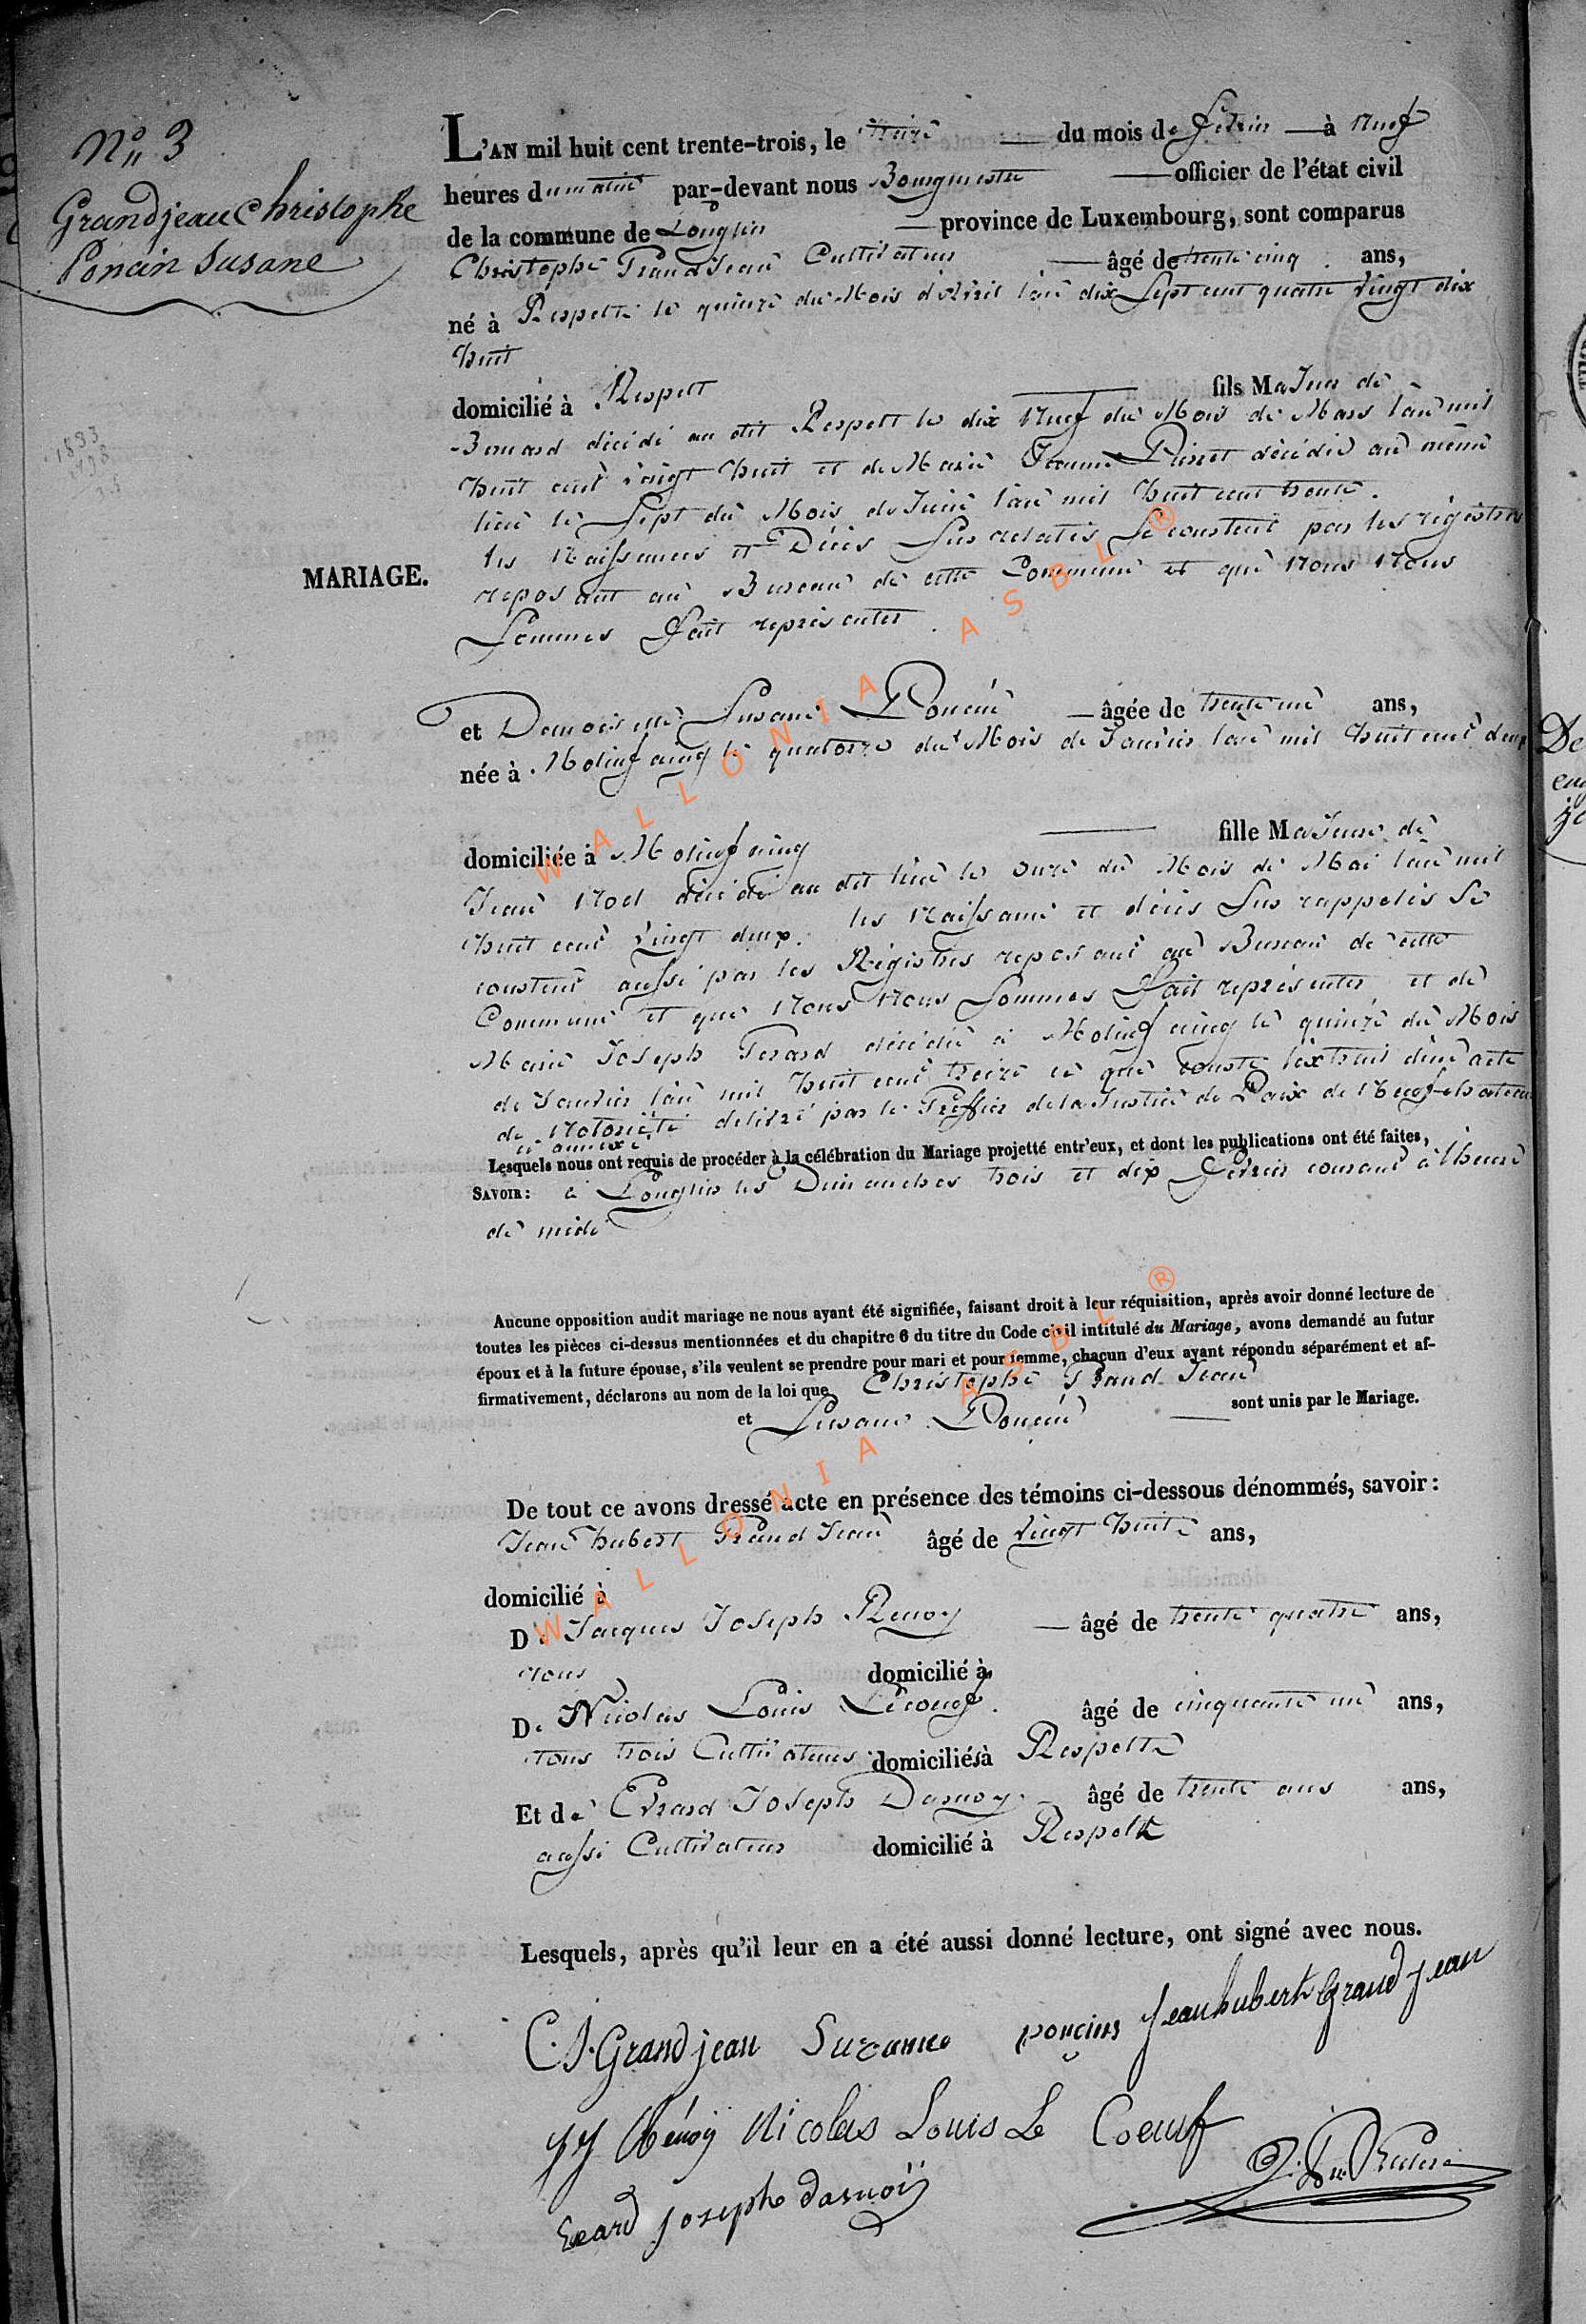 N° 3
Grandjean Christophe
Poncin Susane
MARIAGE.
L'AN mil huit cent trente-trois, le treize du mois de fevrier à neuf
heures du matin par-devant nous Bourgmestre officier de l'état civil
de la commune de Longlier province de Luxembourg, sont comparus
Christophe Grand Jean Cultivateur âgé de trente cinq ans,
né à Respelt le quinze du Mois d'Avril l'an dix Sept cent quatre Vingt dix
huit
domicilié à Respelt fils Majeur de
Bernard décédé au dit Respelt le dix Neuf du Mois de Mars l'an mil
huit cent Vingt huit et de Marie Jeanne décédée au même
lieu le Sept du Mois de Juin l'an mil huit cent trente.
les Naissances et Décès Sus relatés Se constent par les régistres
reposant au Bureau de cette Commune et que Nous Nous
Sommes fait représenter.
et Demoiselle Susane Poncin âgée de trente un ans,
née à Molinfaing le quatorze du Mois de Janvier l'an mil huit cent deux
domiciliée à Molinfaing fille Majeure de
Jean Noel décédé au dit lieu le onze du Mois de Mai l'an mil
huit cent Vingt deux. les Naissance et décès Sus rappelés Se
constent aussi par les Régistres reposant au Bureau de cette
Commune et que Nous Nous Sommes fait représenter et de
Marie Joseph Gerard décédée à Molinfaing le quinze du Mois
de Janvier l'an mil huit cent treize ce que conste l'extrait d'une acte
de Notoriété délivré par le Greffier de la Justice de Paix de Neufchateau
ci annexé
Lesquels nous ont requis de procéder à la célébration du Mariage projetté entr'eux, et dont les publications ont été faites,
SAVOIR: à Longlier les Dimanches trois et dix fevrier courant à l'heure
de midi
Aucune opposition audit mariage ne nous ayant été signifiée, faisant droit à leur réquisition, après avoir donné lecture de
toutes les pièces ci-dessus mentionnées et du chapitre 6 du titre du Code civil intitulé du Mariage, avons demandé au futur
époux et à la future épouse, s'ils veulent se prendre pour mari et pour femme, chacun d'eux ayant répondu séparément et af-
firmativement, déclarons au nom de la loi que Christophe Grand Jean
et Susane Poncin sont unis par le Mariage.
De tout ce avons dressé acte en présence des témoins ci-dessous dénommés, savoir:
Jean hubert Grand Jean âgé de Vingt huit ans,
domicilié à
De Jacques Joseph Renoy âgé de trente quatre ans,
domicilié à
De Nicolas Louis Lecoeuf âgé de cinquante un ans,
tous trois Cultivateurs domiciliés à Respelt
Et de Evrard Joseph Dasnoy âgé de trente ans ans,
aussi Cultivateur domicilié à Respelt
Lesquels, après qu'il leur en a été aussi donné lecture, ont signé avec nous.
C. J. Grandjean Suzanne poncins Jean hubert Grand jean
JJ Rénoÿ Nicolas Louis Le Coeuf
Evard Josephe dasnoÿ
WALLONIA ASBL ®
WALLONIA ASBL ®